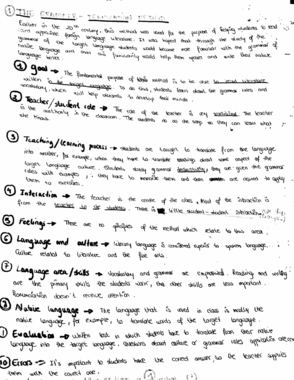 ① THE GRAMMAR - TRANSLATION METHOD
Earlier in the 20th century, this method was used for the purpose of helping students to read
and appreciate foreign language literature. It was hoped that through the study of the
grammar of the target language students would become more familiar with the grammar of
native language and that this familiarity would help them speak and write their native
language better.
① Goal → The fundamental purpose of is to be able to read literature
written in the target language. To do this, students learn about the grammar rules and
vocabulary, which will help students to develop their minds.
② Teacher/student role → The role of the teacher is very traditional. The teacher
is the authority in the classroom. The students do as she says so they can learn what
she knows.
③ Teaching/learning process → Students are taught to translate from one language
into another, for example, when they have to translate readings about some aspect of the
target language culture. Students study grammar deductively, they are given the grammar
rules with examples, they have to memorize them and are asked to apply
them to exercises.
④ Interaction → The teacher is the centre of the class, Most of the interaction is
from the teacher to the students. There is little student - student interaction
⑤ Feelings → There are no of the method which relate to this area.
⑥ Language and culture → Literary language is considered superior to spoken language.
Culture related to literature and the fine arts.
⑦ Language area/skills → Vocabulary and grammar are emphasized. Reading and writing
are the primary skills the students work, the other skills are less important.
Pronunciation doesn't receive attention.
Native language → The language that is used in class is mostly the
native language, for example, to translate words of the target language.
Evaluation → Written test in which students have to translate from their native
language into the target language. Questions about culture or grammar rules application are
⑩ Errors → It's important to students have the correct answer, so the teacher supplies
them with the correct one.